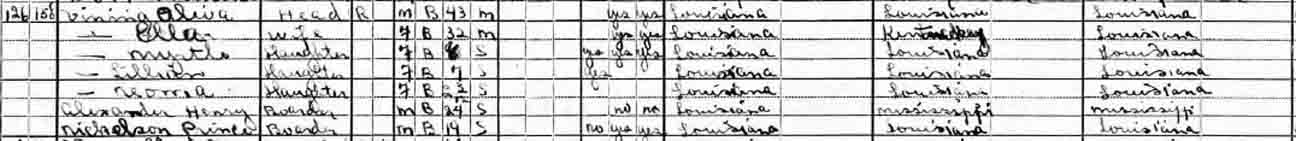 126 158 Vining Oliva Head R M B 43 M yes yes Louisiana Louisiana Louisiana
— Ella Wife F B 32 M yes yes Louisiana Kentuckey Louisiana
— Myrtle Daughter F B 8 S yes yes yes Louisiana Louisiana Louisiana
— Lillian Daughter F B 7 S yes Louisiana Louisiana Louisiana
— Daughter F B S Louisiana Louisiana Louisiana
Alexander Henry Boarder M B 24 S no no Louisiana Mississippi Mississippi
Nickelson Prince Boarder M B 19 S no yes yes Louisiana Louisiana Louisiana